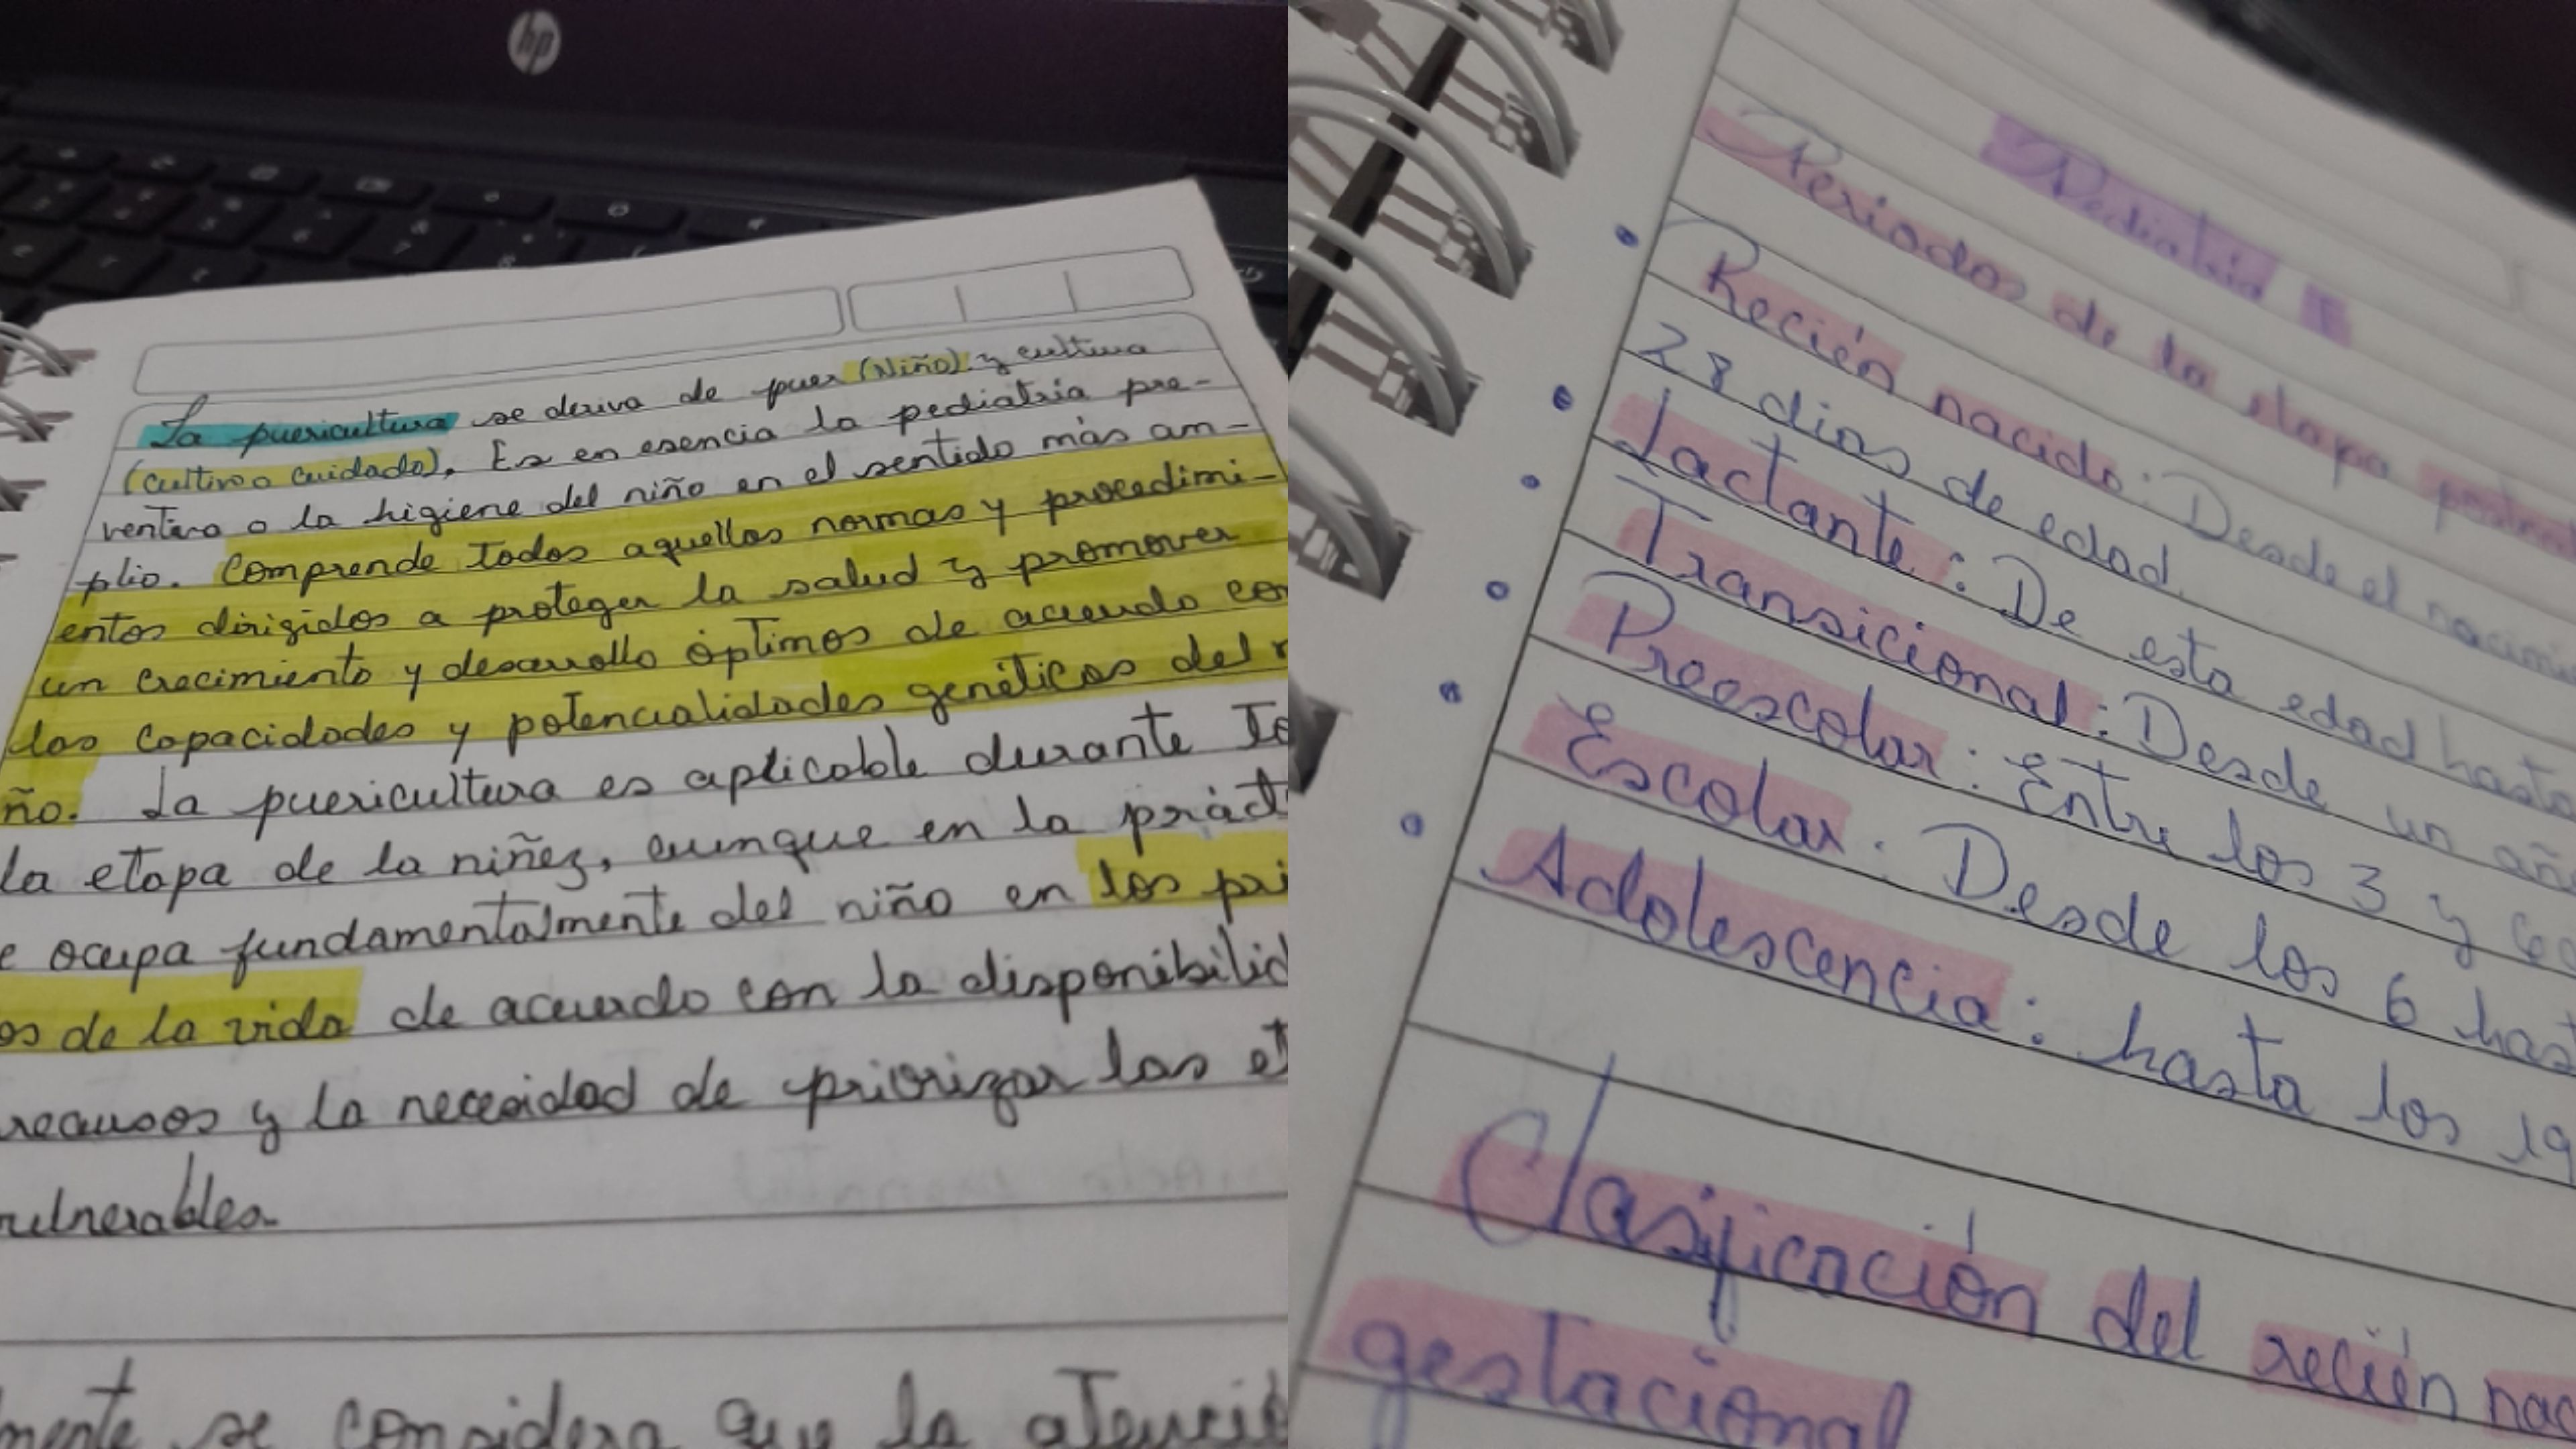 hp
La puericultura se deriva de puer (Niño) y cultura
(cultivo o cuidado). Es en esencia la pediatría pre-
ventiva o la higiene del niño en el sentido más am-
plio. Comprende todas aquellas normas y procedimi-
entos dirigidos a proteger la salud y promover
un crecimiento y desarrollo óptimos de acuerdo co
las capacidades y potencialidades genéticas del
ño. La puericultura es aplicable durante To
la etapa de la niñez, aunque en la práct
e ocupa fundamentalmente del niño en los pri
os de la vida de acuerdo con la disponibilid
recursos y la necesidad de priorizar las et
vulnerables.
mente se considera que la atenció
Pediatría I
Periodos de la etapa postnatal
Recién nacido: Desde el nacimi
28 días de edad.
Lactante: De esta edad hasta
Transicional: Desde un año
Preescolar: Entre los 3 y
Escolar: Desde los 6 hast
Adolescencia: hasta los 19
Clasificación del recién nac
gestacional